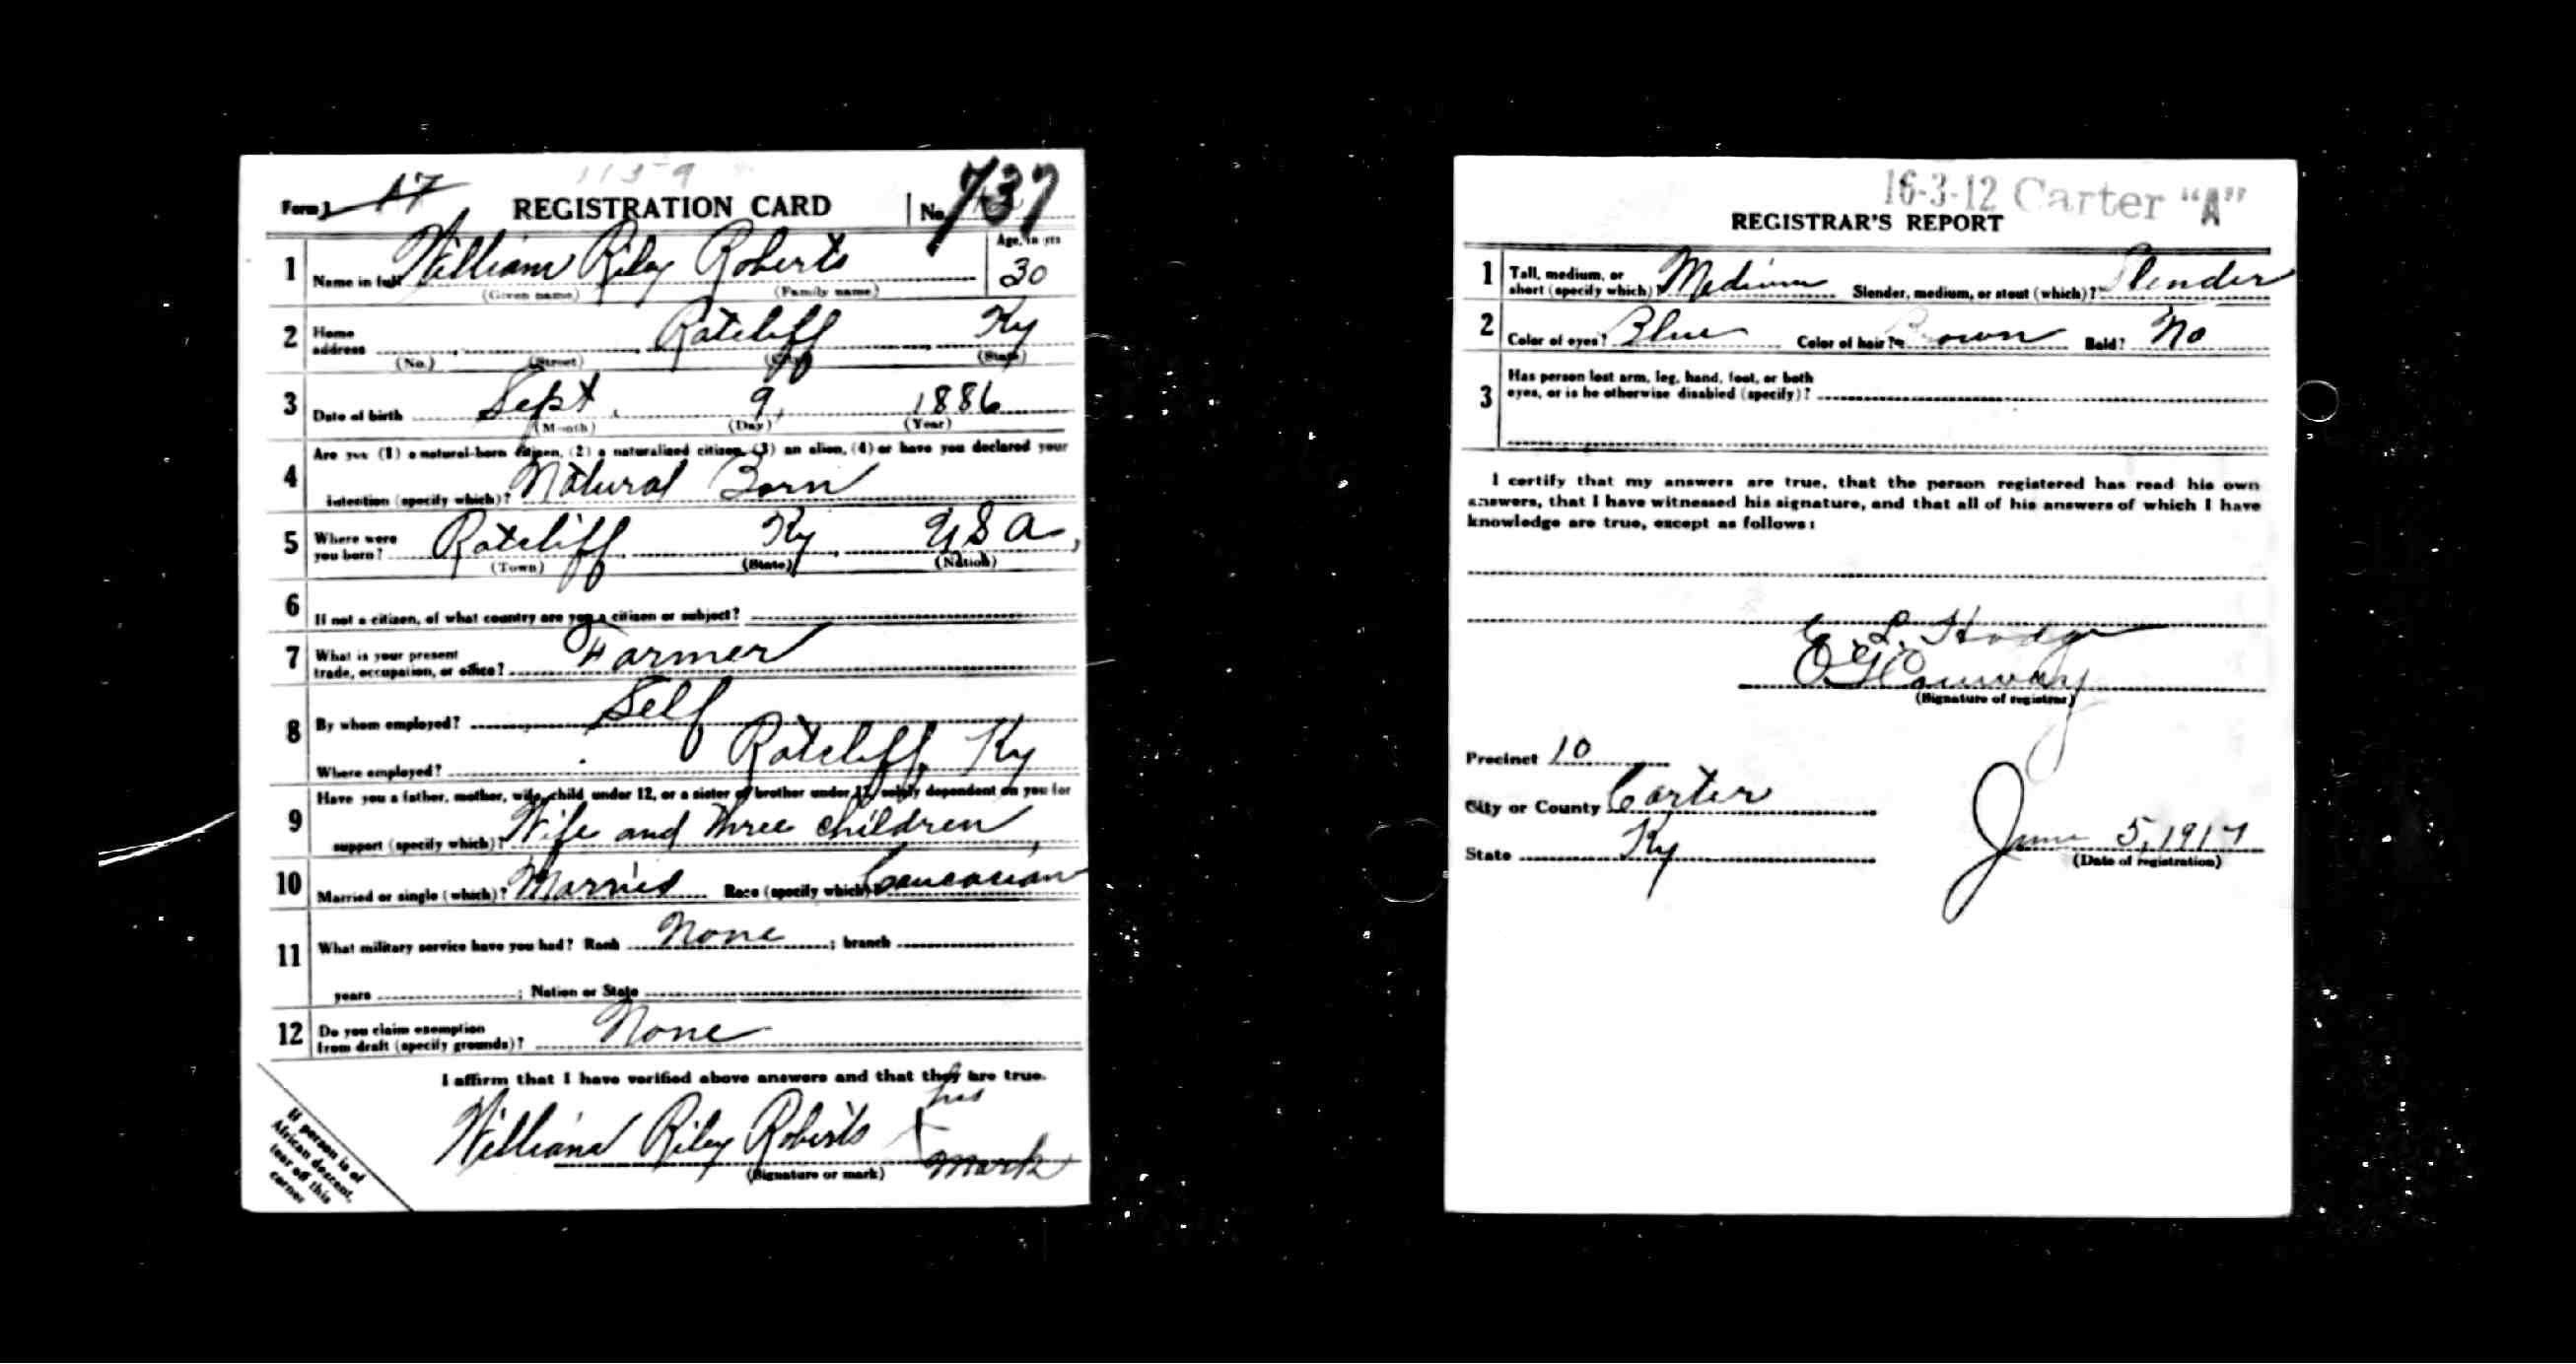 1159
Form 1 17 REGISTRATION CARD No. 737
1 Name in full William Riley Roberts Age, in yrs 30
(Given name) (Family name)
2 Home address Ratcliff Ky
(No.) (Street) (City) (State)
3 Date of birth Sept. 9, 1886
(Month) (Day) (Year)
4 Are you (1) a natural-born citizen, (2) a naturalized citizen, (3) an alien, (4) or have you declared your
intention (specify which)? Natural Born
5 Where were you born? Ratcliff, Ky, USA,
(Town) (State) (Nation)
6 If not a citizen, of what country are you a citizen or subject?
7 What is your present trade, occupation, or office? Farmer
8 By whom employed? Self
Where employed? Ratcliff, Ky
9 Have you a father, mother, wife, child under 12, or a sister or brother under 12, solely dependent on you for
support (specify which)? Wife and three children,
10 Married or single (which)? Married Race (specify which)? Caucasian
11 What military service have you had? Rank None ; branch
years ; Nation or State
12 Do you claim exemption from draft (specify grounds)? None
I affirm that I have verified above answers and that they are true.
his
William Riley Roberts X
(Signature or mark) mark
If person is of
African descent,
tear off this
corner
16-3-12 Carter "A"
REGISTRAR'S REPORT
1 Tall, medium, or short (specify which)? Medium Slender, medium, or stout (which)? Slender
2 Color of eyes? Blue Color of hair? Brown Bald? No
3 Has person lost arm, leg, hand, foot, or both
eyes, or is he otherwise disabled (specify)?
I certify that my answers are true, that the person registered has read his own
answers, that I have witnessed his signature, and that all of his answers of which I have
knowledge are true, except as follows:
E. L. Hodge
(Signature of registrar)
Precinct 10
City or County Carter
State Ky
June 5, 1917
(Date of registration)